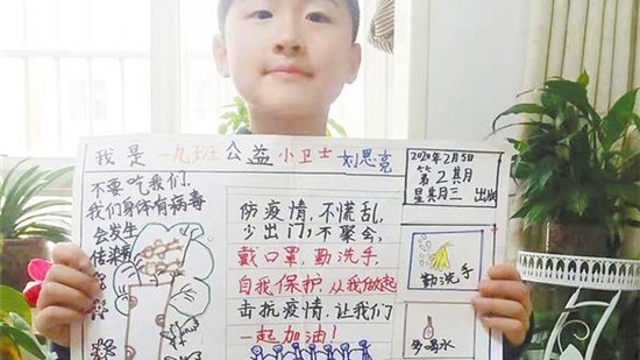 我是一九班公益小卫士刘思亮
2020年2月5日
第2期
星期三 出版
不要吃我们,
我们身体有病毒
会发生
传染病
防疫情,不慌乱,
少出门,不聚会,
戴口罩,勤洗手,
自我保护,从我做起
击抗疫情,让我们
一起加油!
勤洗手
多喝水